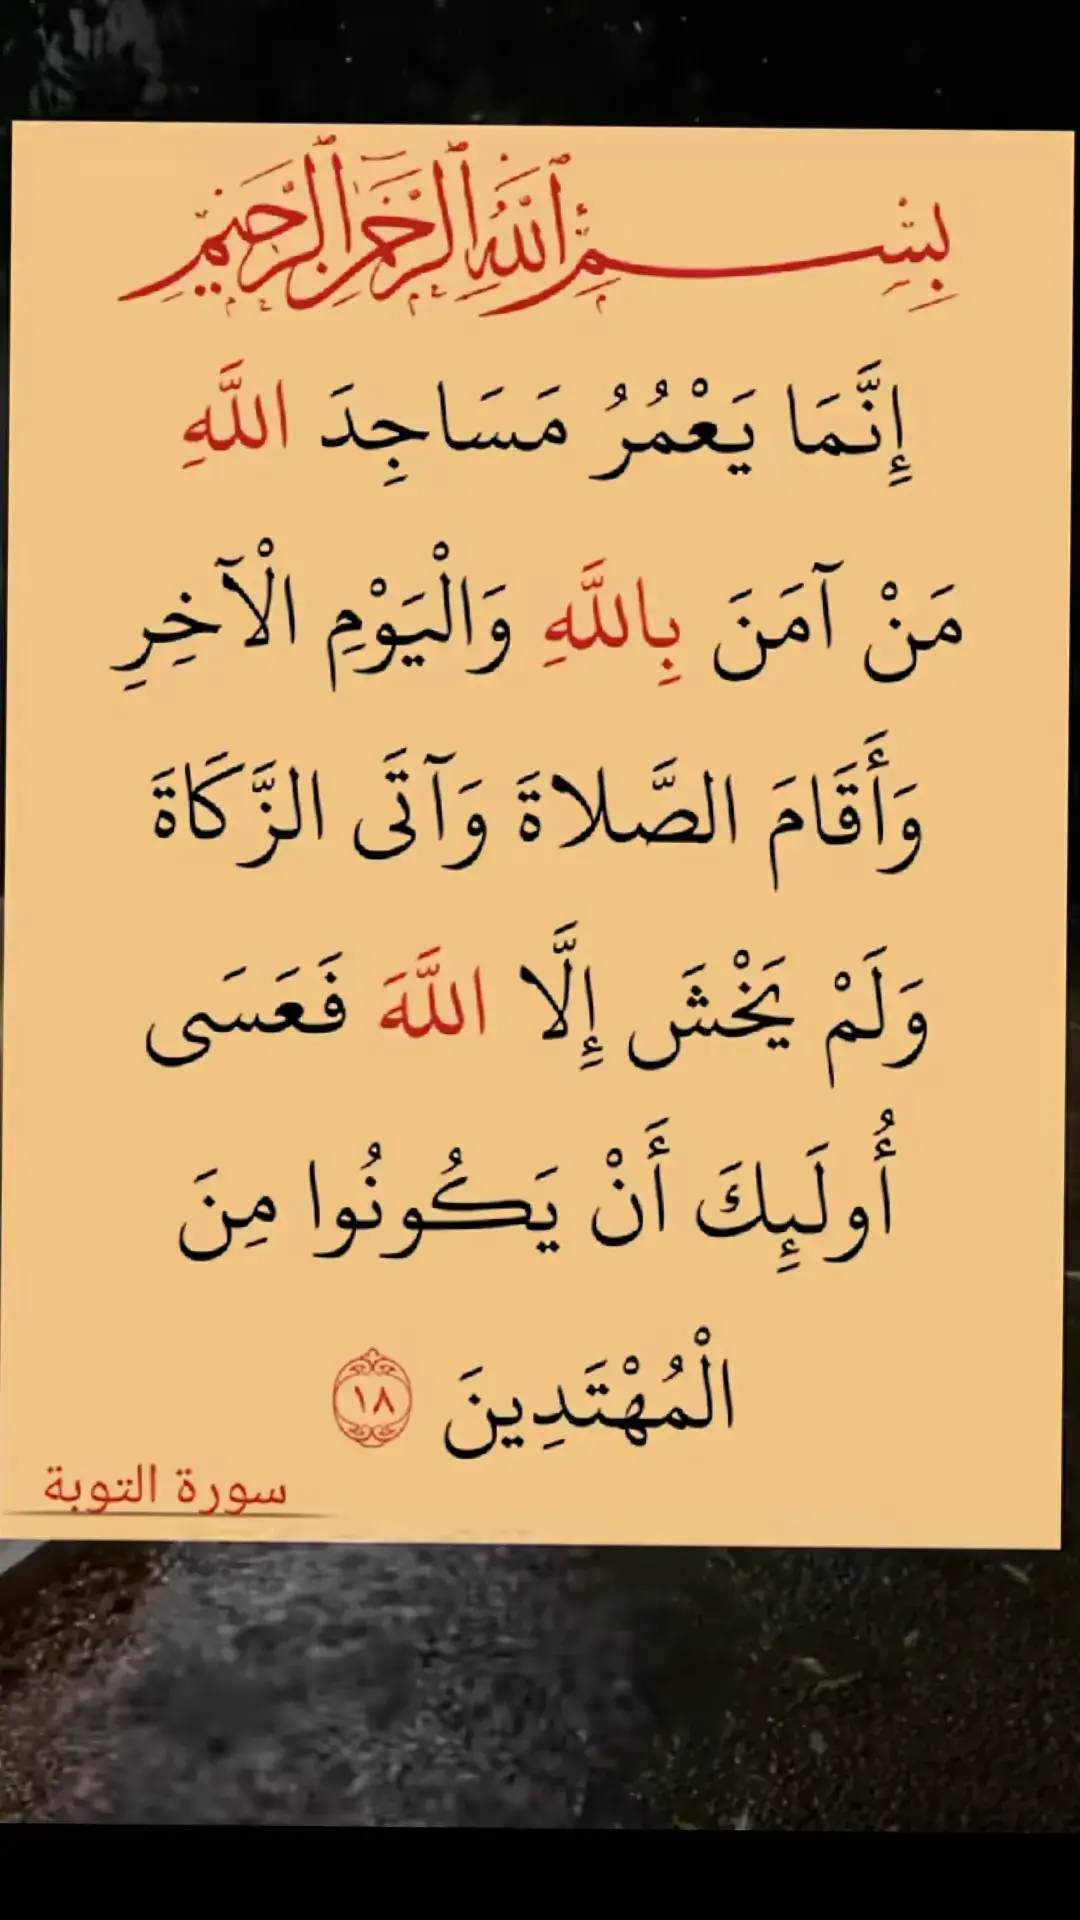 بِسْمِ ٱللَّهِ ٱلرَّحْمَٰنِ ٱلرَّحِيمِ
إِنَّمَا يَعْمُرُ مَسَاجِدَ اللَّهِ
مَنْ آمَنَ بِاللَّهِ وَالْيَوْمِ الْآخِرِ
وَأَقَامَ الصَّلاةَ وَآتَى الزَّكَاةَ
وَلَمْ يَخْشَ إِلَّا اللَّهَ فَعَسَى
أُولَئِكَ أَنْ يَكُونُوا مِنَ
الْمُهْتَدِينَ ١٨
سورة التوبة